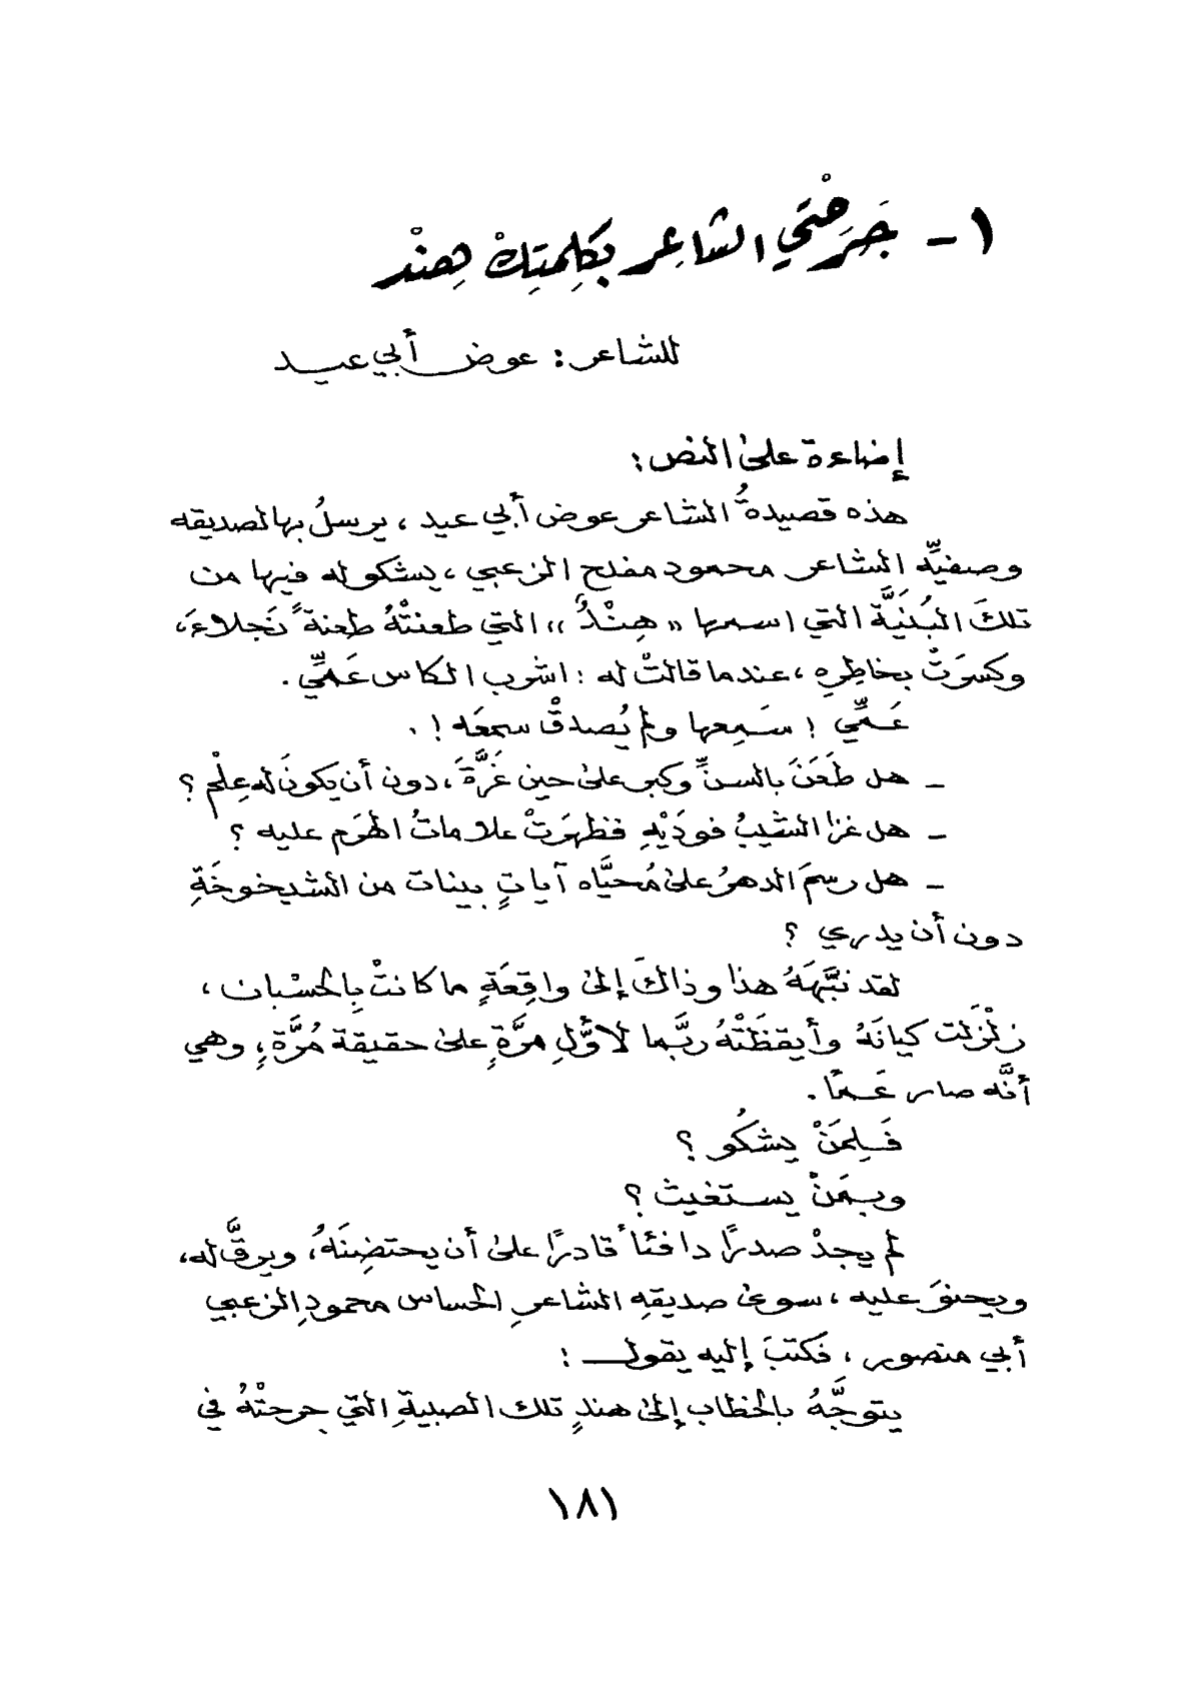 ١- جَرَحْتي الشاعِر بكَلِمتِكْ هِنْد
للشاعر : عوض أبي عيد
إضاءة على النص :
هذه قصيدةُ الشاعر عوض أبي عيد ، يرسلُ بها لصديقه
وصفيِّه الشاعر محمود مفلح الزعبي ، يشكو له فيها من
تلكَ البُنَيَّة التي اسمها « هِنْدُ » التي طعنتْهُ طعنةً نَجلاءَ،
وكسَرَتْ بخاطِرِهِ ، عندما قالتْ له : اشرب الكاس عَمِّي .
عَـمِّي ! سَمِعها ولم يُصدقْ سمعَه ! .
ـ هل طَعَنَ بالسنِّ وكبر على حين غَرَّةَ ، دون أن يكونَ له عِلْم ؟
ـ هل غزا الشيبُ فودَيْهِ فظهرَتْ علاماتُ الهرَم عليه ؟
ـ هل رسمَ الدهرُ على مُحيَّاه آياتٍ بينات من الشيخوخَةِ
دون أن يدري ؟
لقد نبَّهَهُ هذا وذاكَ إلى واقِعَةٍ ما كانتْ بِالحُسْبان ،
زلْزَلت كيانَهُ وأيقظَتْهُ ربَّما لأوَّلِ مرَّةٍ على حقيقة مُرَّةٍ ، وهي
أنَّه صار عَـمَّا .
فَـلِمَنْ يشكُو ؟
وبـمَنْ يستغيث ؟
لم يجدْ صدرًا دافئًا قادرًا على أن يحتضِنَهُ ، ويرقَّ له ،
ويحنوَ عليه ، سوى صديقِهِ الشاعرِ الحساس محمودِ الزعبي
أبي منصور ، فكتبَ إليه يقول :
يتوجَّهُ بالخطاب إلى هندٍ تلك الصبيةِ التي جرحتْهُ في
١٨١